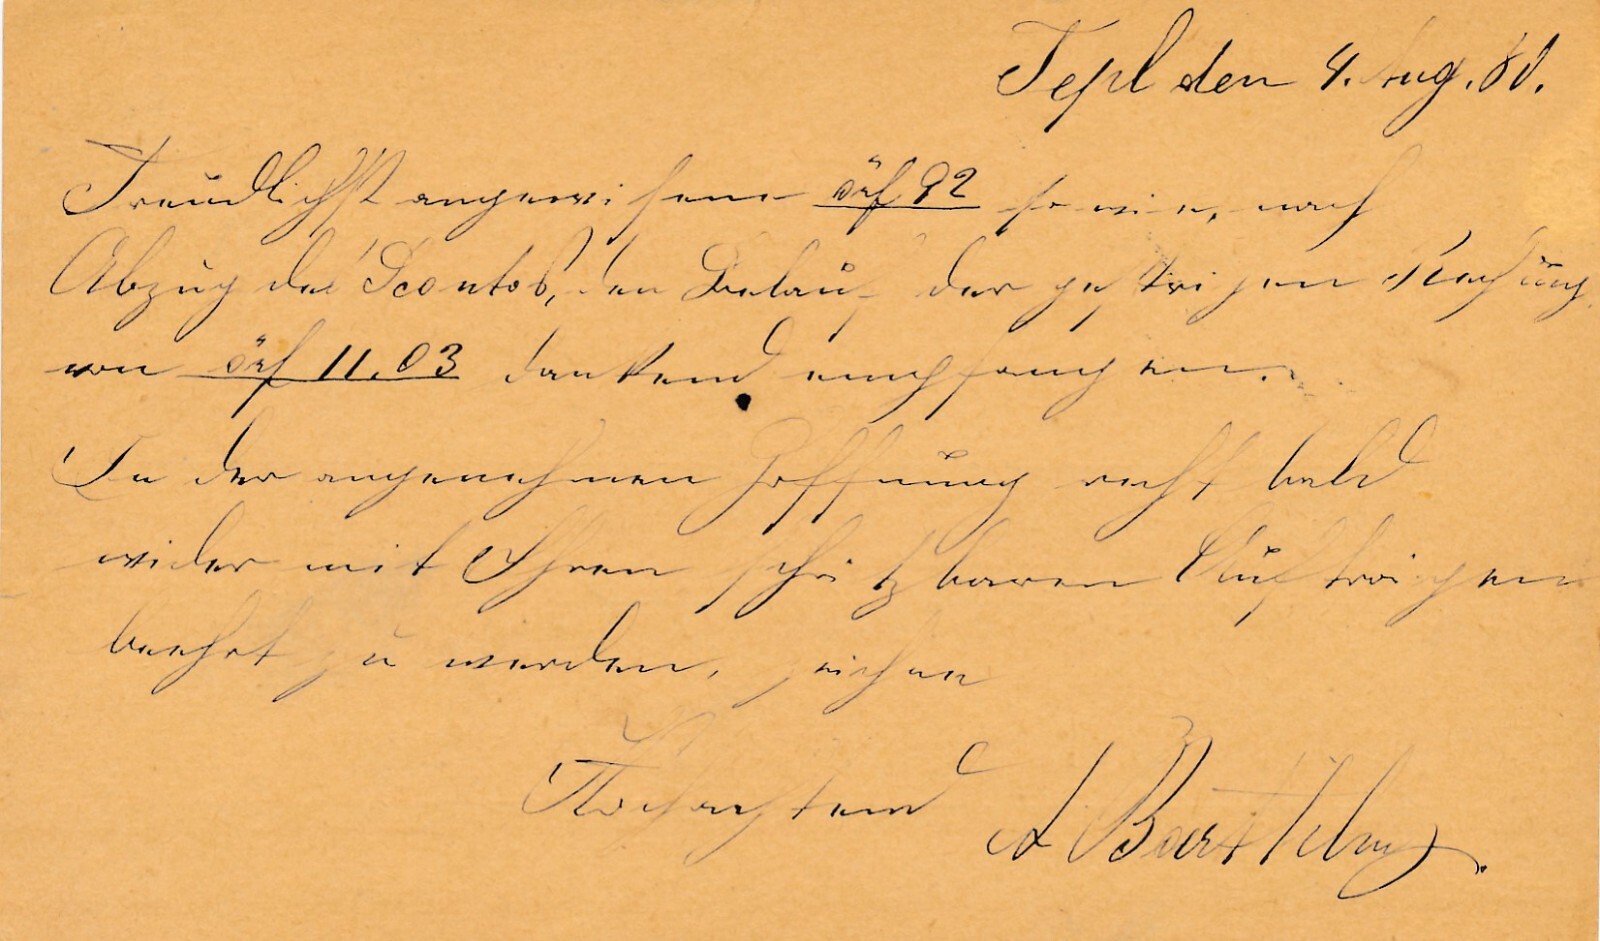 Tepl den 4. Aug. 81.
Freundlichst angewisene örf 92 so wie, nach
Abzug des Scontos, den Belauf der gestrigen Rechnung
von örf 11.03 dankend empfangen.
In der angenehmen Hoffnung recht bald
wider mit Ihren schätzbaren Aufträgen
beehrt zu werden, zeichne
Hochachtend
A Barthl